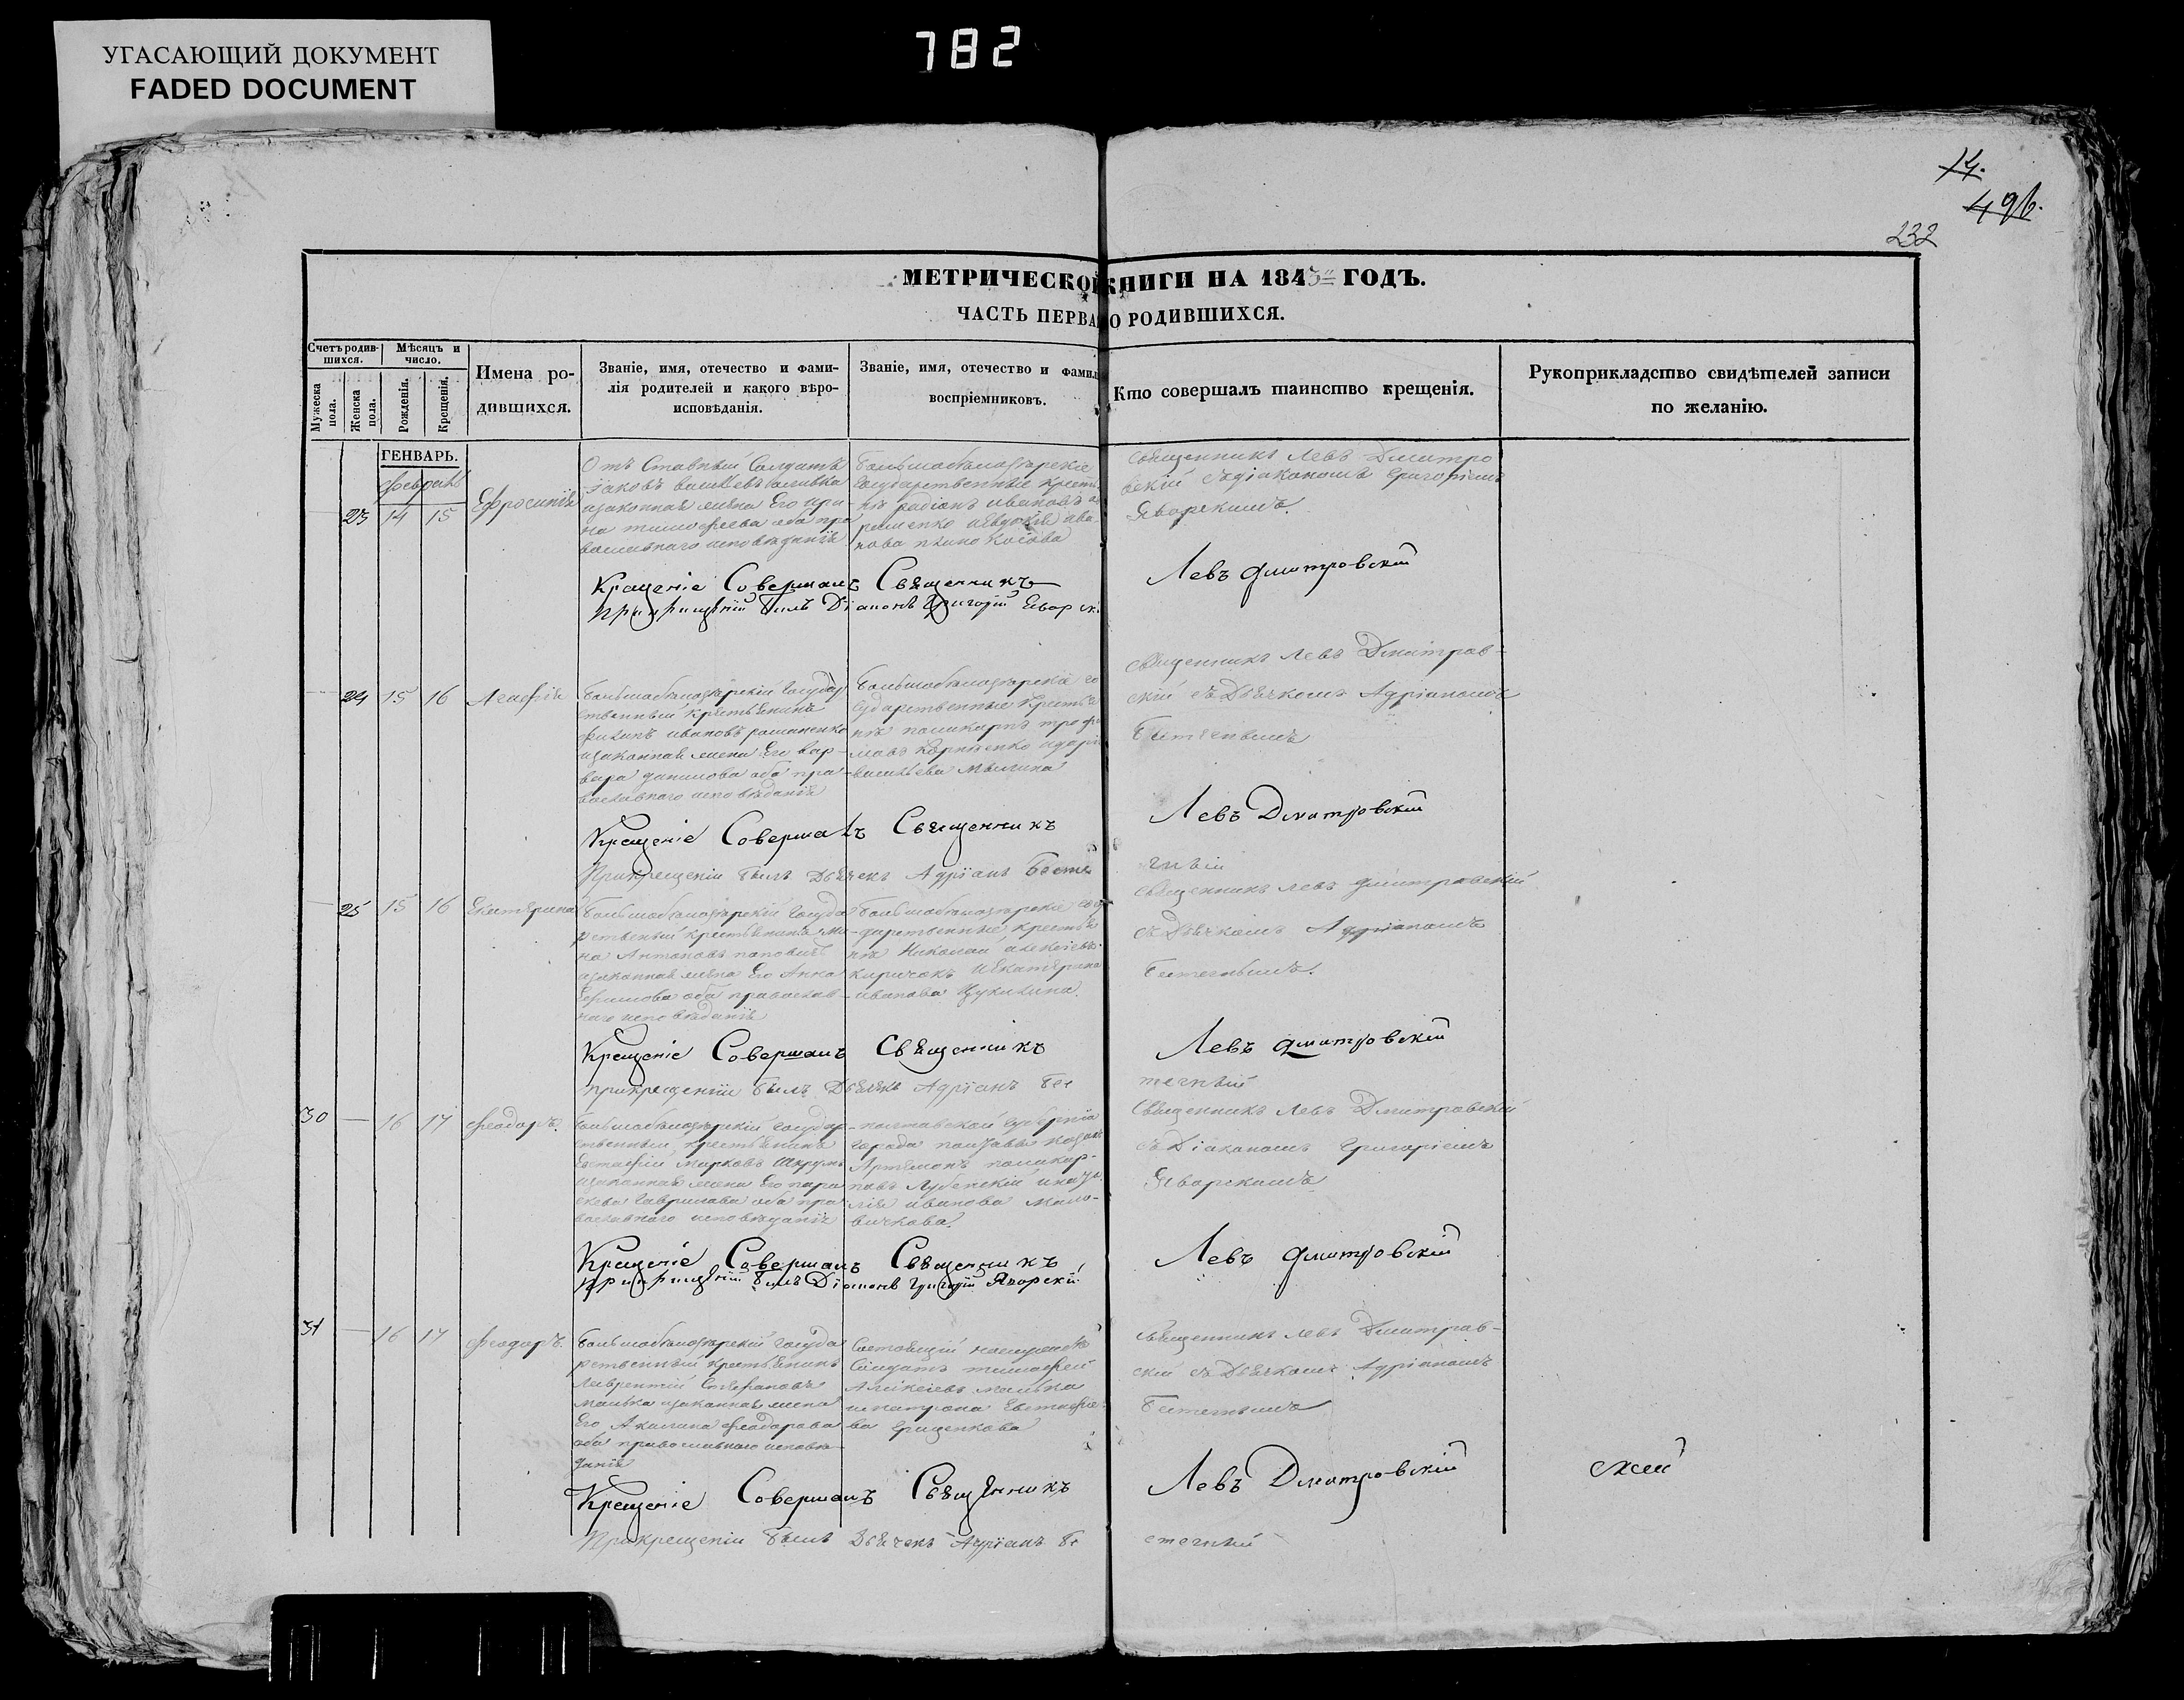 УГАСАЮЩИЙ ДОКУМЕНТ
FADED DOCUMENT
782
14.
496.
232
МЕТРИЧЕСКОЙ КНИГИ НА 1843 ГОДЪ.
ЧАСТЬ ПЕРВАЯ О РОДИВШИХСЯ.
Счетъ родив-
шихся.
Мужеска
пола.
Женска
пола.
Мѣсяцъ и
число.
Рожденія.
Крещенія.
Имена ро-
дившихся.
Званіе, имя, отечество и фами-
лія родителей и какого вѣро-
исповѣданія.
Званіе, имя, отечество и фамил
воспріемниковъ.
Кто совершалъ таинство крещенія.
Рукоприкладство свидѣтелей записи
по желанію.
ГЕНВАРЬ.
февраль
23 14 15 Ефросинія
Отъ Ставный Солдатъ
Іаковъ
изаконная жена Его ири
на тимофеева оба пра
вославнаго исповѣданія
Большебѣлозѣрскіе
Государственные кресть
нѣ радіонъ ивановъ
ременко иевдокія ива
нова
Священникъ Левъ Дмитро
вскій съдіакономъ Григоріемъ
Яворскимъ.
Крещеніе Совершалъ Священникъ Левъ Дмитровскій
прикрещеніи былъ Діаконъ Григорій Явор
24 15 16 Агафія
Большебѣлозѣрскій Государ
ственный крестьянинъ
филипъ ивановъ романенко
изаконная жена Его вар-
вара данилова оба пра-
вославнаго исповѣданія
Большебѣлозѣрскіе го
сударственные кресть
нѣ поликарпъ трофи
мовъ Корніенко идарія
васильева
Священникъ Левъ Дмитров-
скій съДьячкомъ Адріаномъ
Бетегнымъ
Крещеніе Совершалъ Священникъ Левъ Дмитровскій
Прикрещеніи былъ Дьячекъ Адріанъ Бете
гный
25 15 16 Екатерина
Большебѣлозѣрскій Госуда
рственный крестьянинъ Ми
на Антоновъ поповичъ
изаконная жена Его Анна
Ефимова оба православ-
наго исповѣданія
Большебѣлозѣрскіе госу
дарственные крестья
нѣ Николай алексіевъ
киричокъ иЕкатерина
иванова
Священникъ Левъ Дмитровскій
съДьячкомъ Адріаномъ
Бетегнымъ.
Крещеніе Совершалъ Священникъ Левъ Дмитровскій
прикрещеніи былъ Дьячекъ Адріанъ Бе
тегный
30 — 16 17 Феодоръ.
Большебѣлозѣрскій государ-
ственный крестьянинъ
Евстафій Марковъ
изаконная жена Его пара
скева Гаврилова оба пра
вославнаго исповѣданія
полтавской Губерніи
города полтавы козакъ
Артемонъ поликар-
повъ Лубенскій
иванова
Священникъ Левъ Дмитровскій
съДіакономъ Григоріемъ
Яворскимъ
Крещеніе Совершалъ Священникъ Левъ Дмитровскій
прикрещеніи былъ Діаконъ Григорій Яворскій
31 — 16 17 Феодоръ.
Большебѣлозѣрскій госуда
рственный крестьянинъ
Лаврентій Стефановъ
Малька изаконная жена
Его Акилина Феодорова
оба православнаго исповѣ-
данія
Солдатъ тимофей
Алексіевъ малька
иматрона Евстафіе-
ва Грищенкова
Священникъ Левъ Дмитров-
скій съДьячкомъ Адріаномъ
Бетегнымъ
Крещеніе Совершалъ Священникъ Левъ Дмитровскій
Прикрещеніи былъ Дьячекъ Адріанъ Бе
тегный